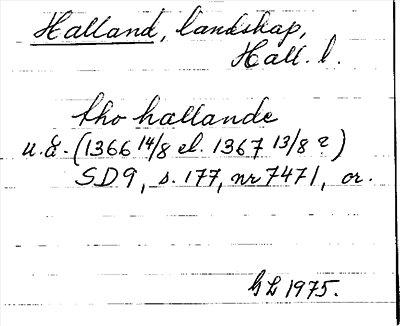 Halland, landskap,
Hall. l.
tho hallande
u.å. (1366 14/8 el. 1367 13/8 ?)
SD9, s. 177, nr 7471, or.
GL 1975.